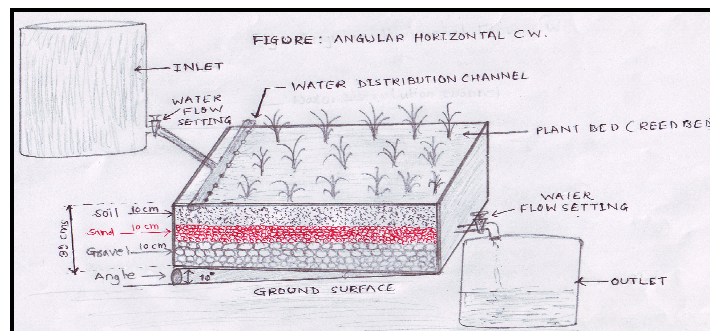 FIGURE: ANGULAR HORIZONTAL CW.
INLET
WATER DISTRIBUTION CHANNEL
WATER
FLOW
SETTING
PLANT BED (REED BED
WATER
FLOW SETTING
Soil 10cm
Sand 10cm
Gravel 10cm
Angle
10°
GROUND SURFACE
OUTLET